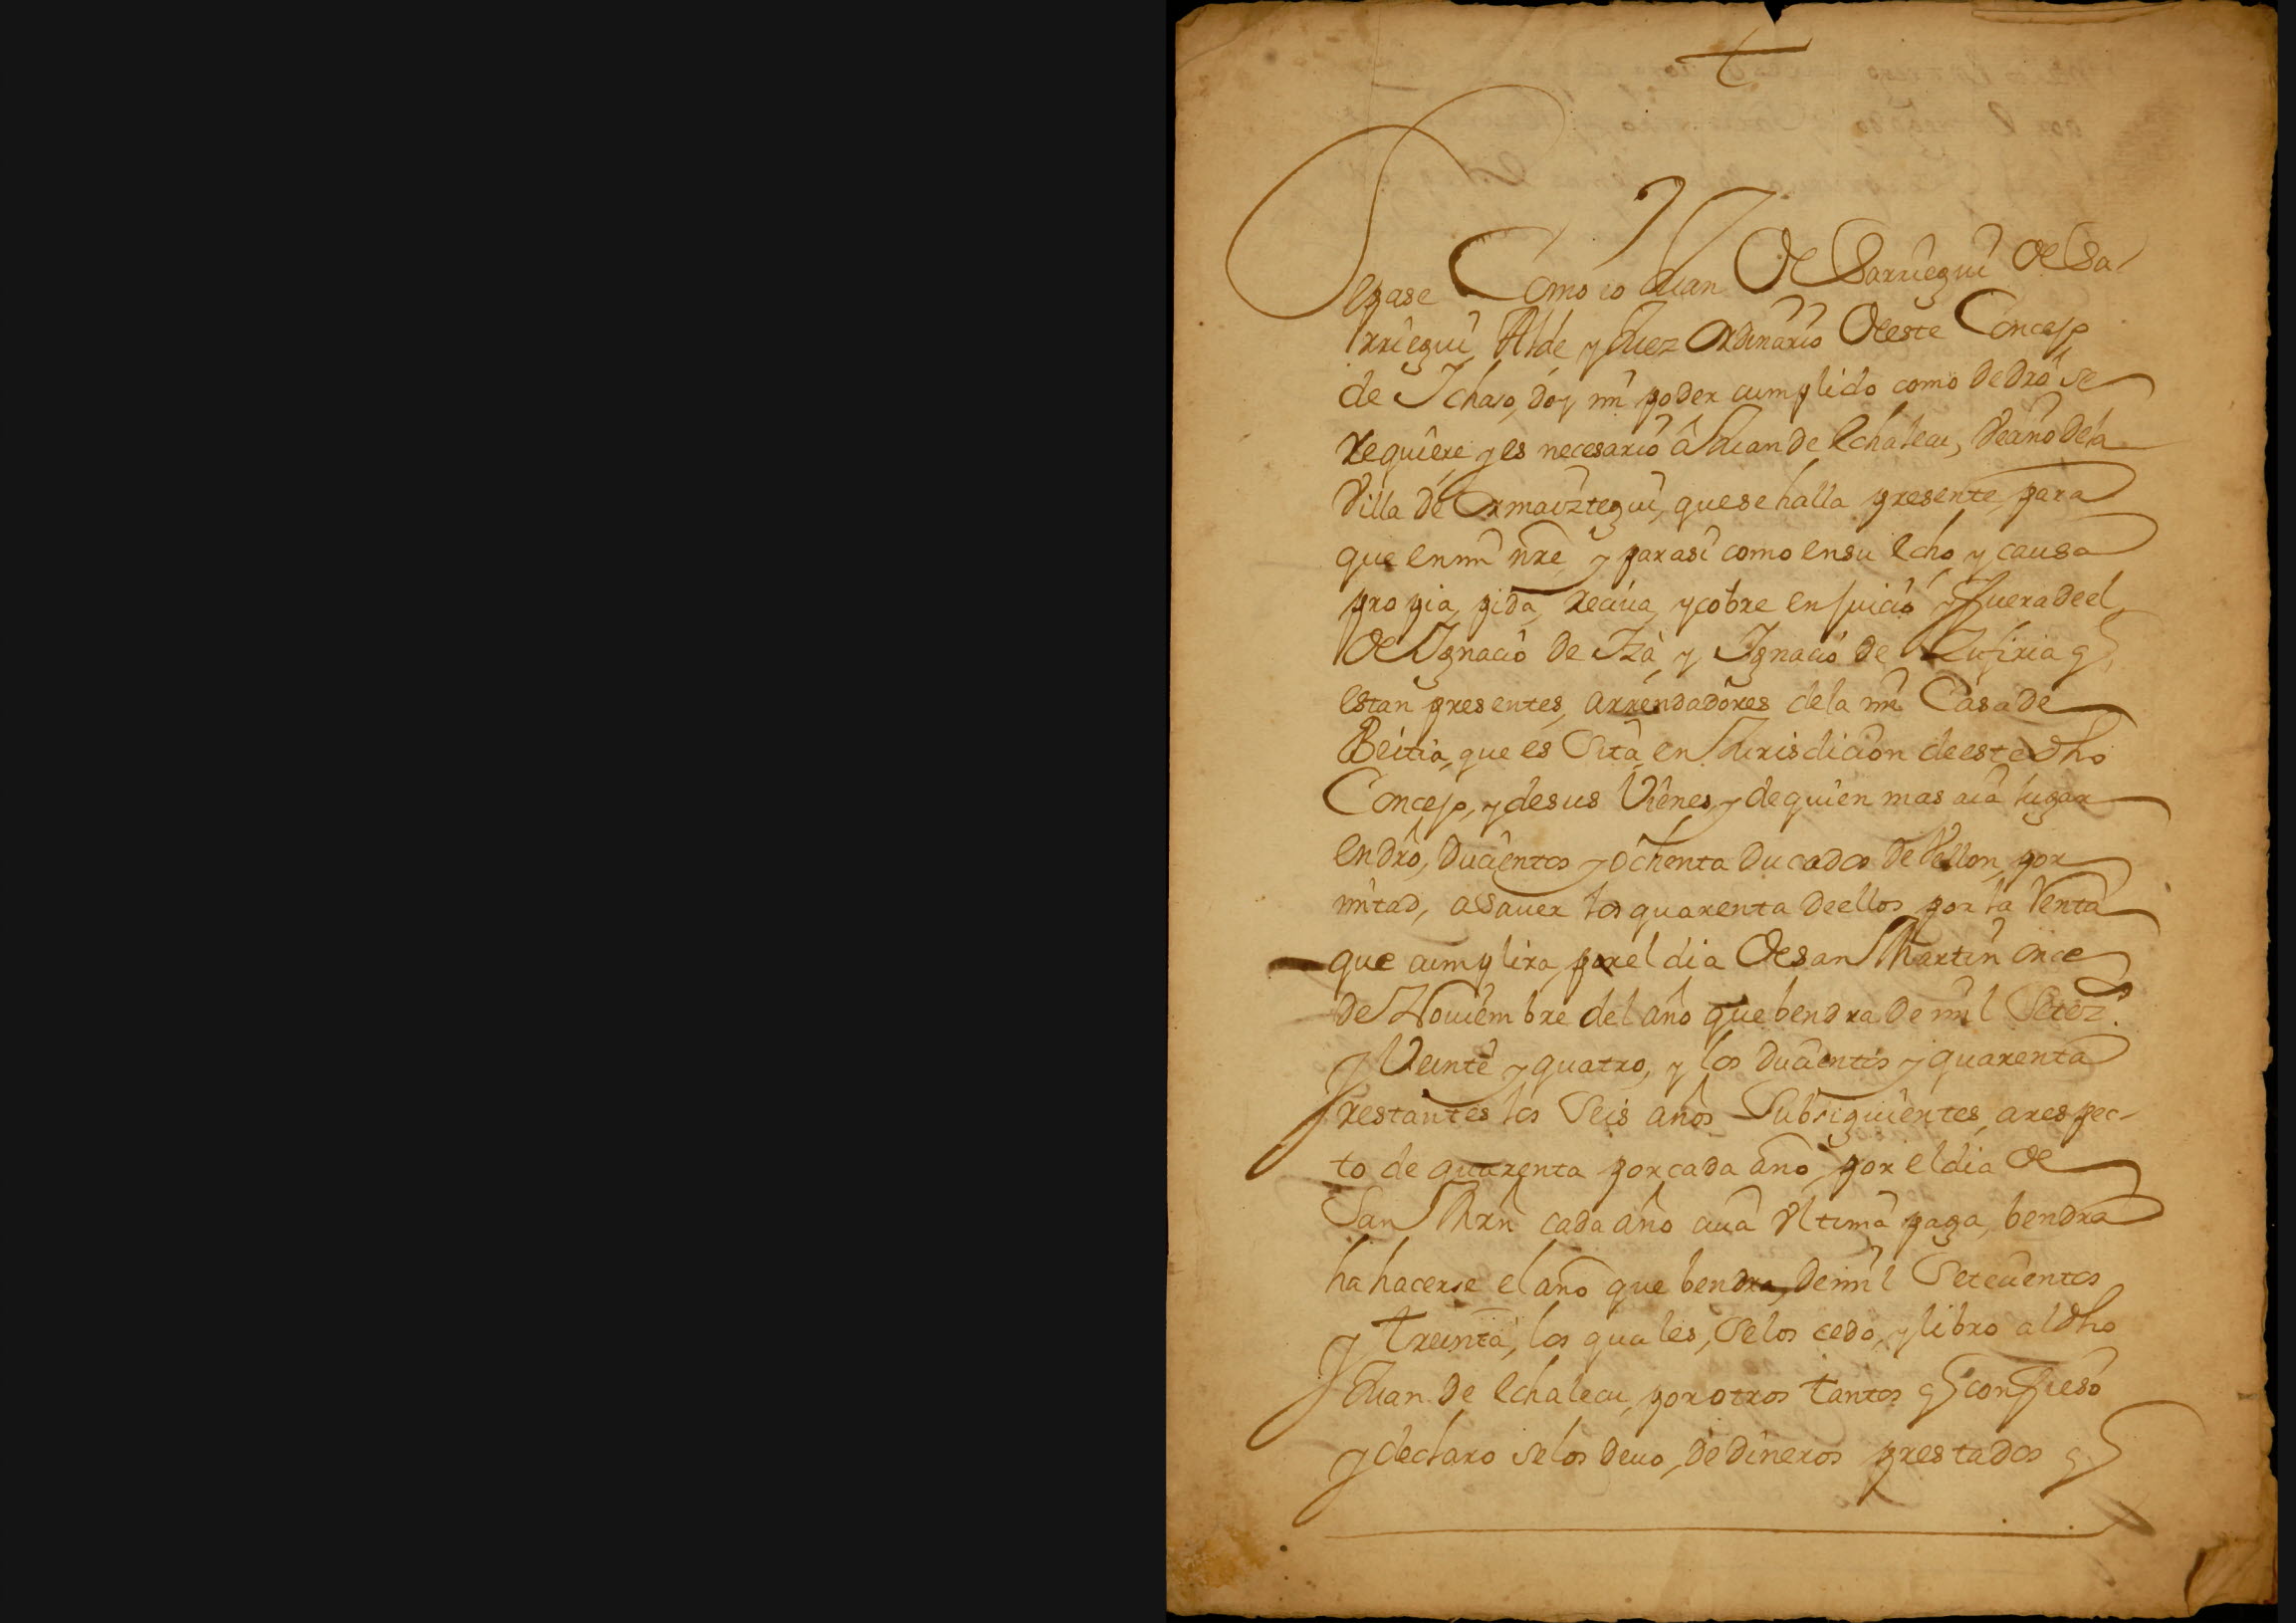 +
Sepase Como io Juan De Sarriegui de Sa-
rriegui Allde y Juez Ordinario Deste Concejo
de Ichaso, doy mi poder cumplido como de dro se
requiere y es necesario â Juan de Echalecu, Veçino de la
Villa de Ormaiztegui, que se halla presente para
que en mi nre y para si como en su echo y causa
propia, pida, reciua, y cobre en juicio y fuera de el,
de Ignacio de Iza y Ignacio de Zufiria q
estan presentes, arrendadores de la mi Casa de
Beitia, que es Sita en Jurisdicion de este dho
Concejo, y de sus Vienes, y de quien mas aia lugar
en dro, ducientos y ochenta ducados de Vellon, por
mitad, a sauer los quarenta de ellos por la Renta
que cumplira por el dia de san Martin once
de Nouiembre del año que bendra de mil Setez.s
y Veinte y quatro, y los ducientos y quarenta
restantes los Seis años Subsiguientes, a respec-
to de quarenta por cada año, por el dia de
San Mrn cada año cuia Vltima paga, bendra
ha hacerse el año que bendra, de mil Setecientos
y treinta, los quales, se los cedo, y libro al dho
Juan de Echalecu, por otros tantos q confieso
y declaro se los deuo, de dineros prestados q